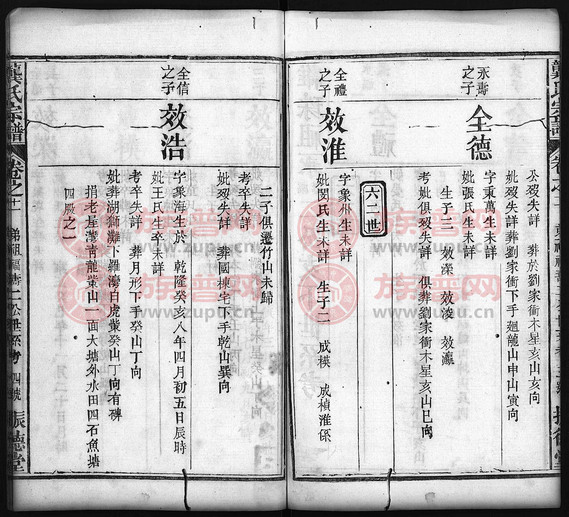 公歿失詳 葬於劉家衝木星亥山亥向
妣歿失詳葬劉家衝下手廻龍山申山寅向
永壽之子
全德
字秉萬生未詳
妣張氏生未詳
生子三 效濚 效浚 效瀛
考妣俱歿失詳 俱葬劉家衝木星亥山巳向
六二世
全禮之子
效淮
字象州生未詳
妣閔氏生未詳 生子二 成模 成楨淮係
二子俱遷竹山未歸
考卒失詳
妣歿失詳 葬國棟宅下手乾山巽向
全信之子
效浩
字象海生於 乾隆癸亥八年四月初五日辰時
妣王氏生卒未詳
考卒失詳 葬月形下手癸山丁向
妣葬湖獅灘下羅灣白虎嘴癸山丁向有碑
捐老屋灣青龍嘴山一面大塘外水田四石魚塘
四股之一
龔氏宗譜
卷之十一
二公世系考
四號
振德堂
族譜网
www.zupu.cn